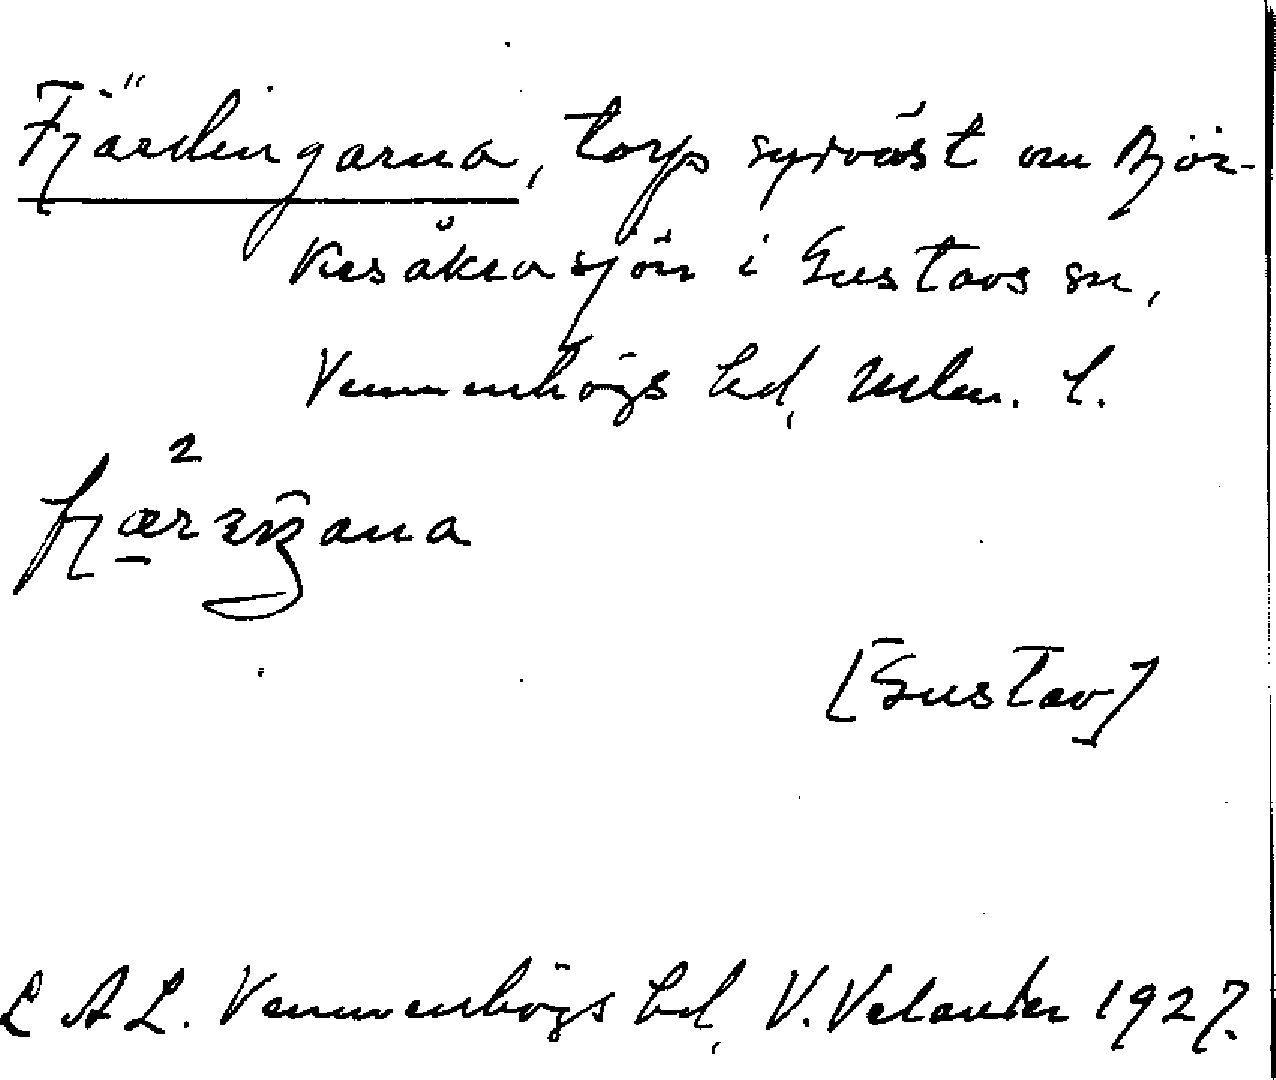 Fjärdingarna, torp sydväst om Björ-
kesåkrasjön i Gustavs sn,
Vemmenhögs hd, Mlm. l.
[Gustav]
L A L. Vemmenhögs hd, V. Velander 1927.